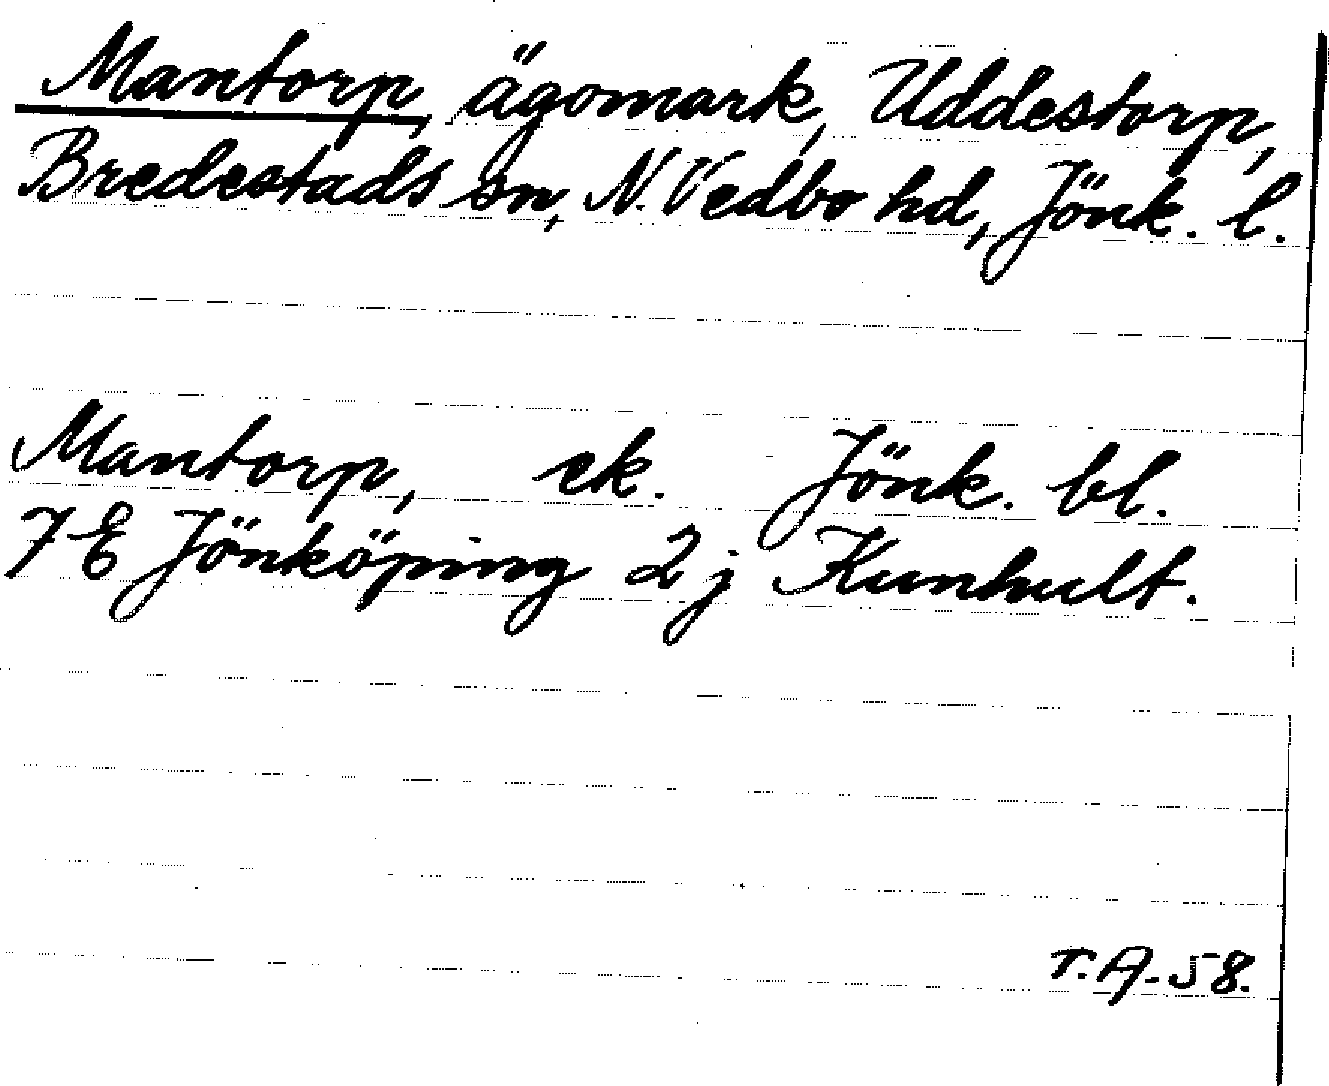 Mantorp, ägomark, Uddestorp,
Bredestads sn, N. Vedbo hd, Jönk. l.
Mantorp, ek. Jönk. bl.
7 E Jönköping 2 j Kunhult.
T.A. 58.